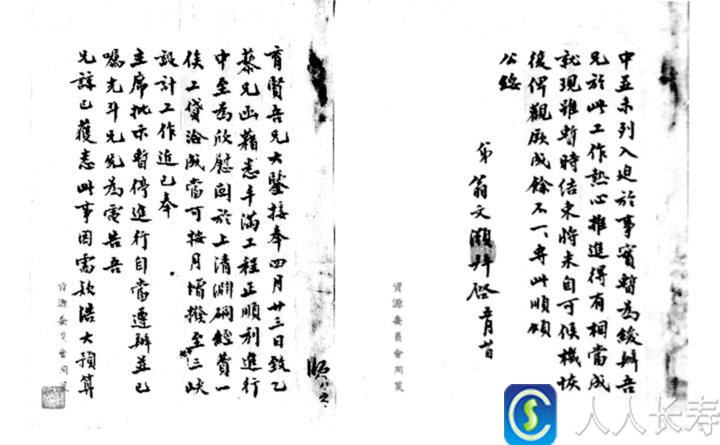 育賢吾兄大鑒接奉四月廿三日致乙
藜兄函藉悉平滿工程正順利進行
中至為欣慰關於上清淵硐經費一
俟工貸洽成當可按月增撥至三峽
設計工作近已奉
主席批示暫停進行自當遵辦並已
囑光斗兄先為電告吾
兄諒已獲悉此事因需款浩大預算
資源委員會用箋
中並未列入迫於事實暫為緩辦吾
兄於此工作熱心推進得有相當成
就現雖暫時結束將來自可候機恢
復俾觀厥成餘不一一專此順頌
公綏
弟翁文灝拜啓五月
資源委員會用箋
人人长寿